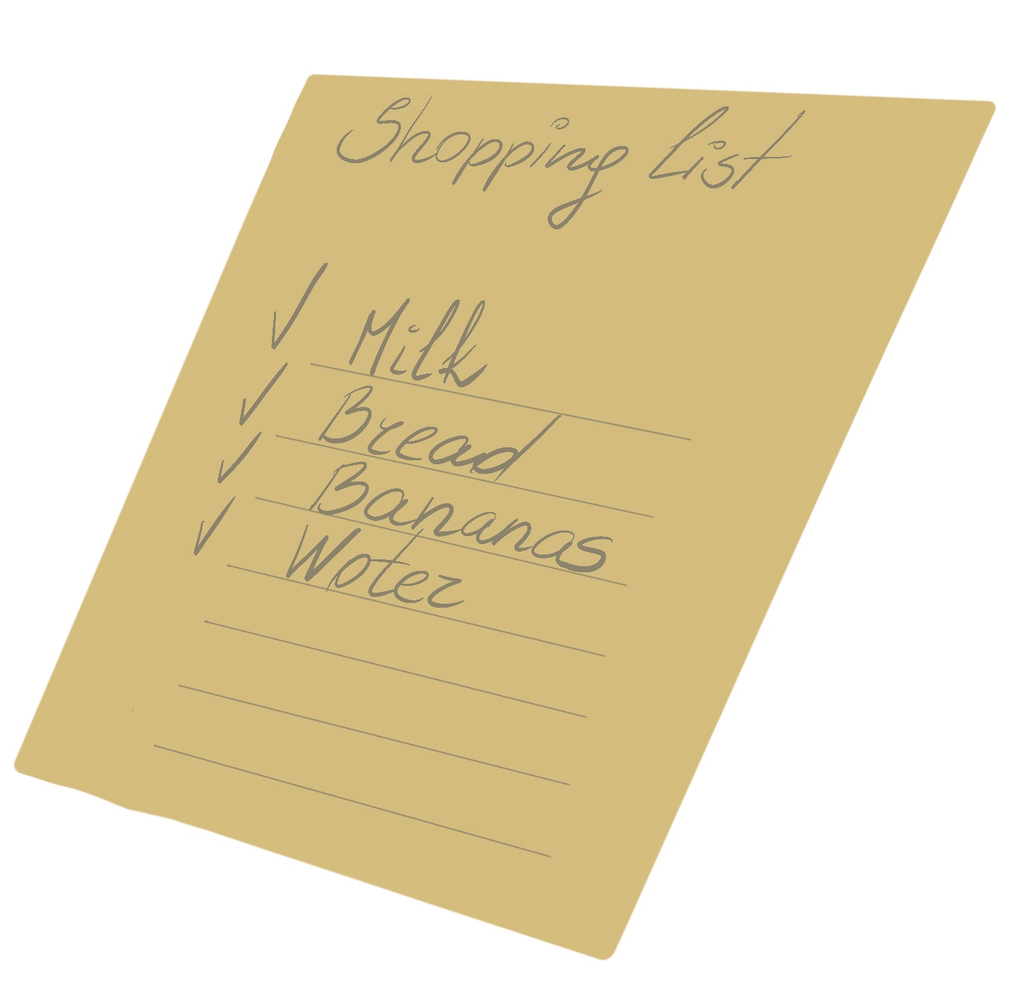 Shopping List
✓ Milk
✓ Bread
✓ Bananas
✓ Woter